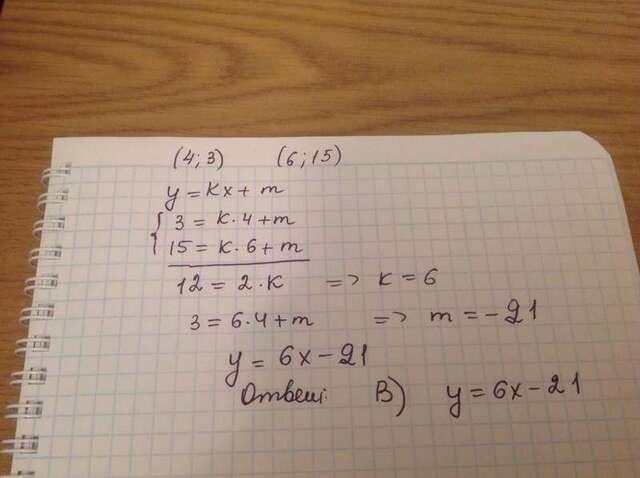 (4;3) (6;15)
y = kx + m
3 = k·4+m
15 = k·6+m
12 = 2·k => k = 6
3 = 6·4+m => m = -21
y = 6x - 21
Ответ: В) y = 6x - 21